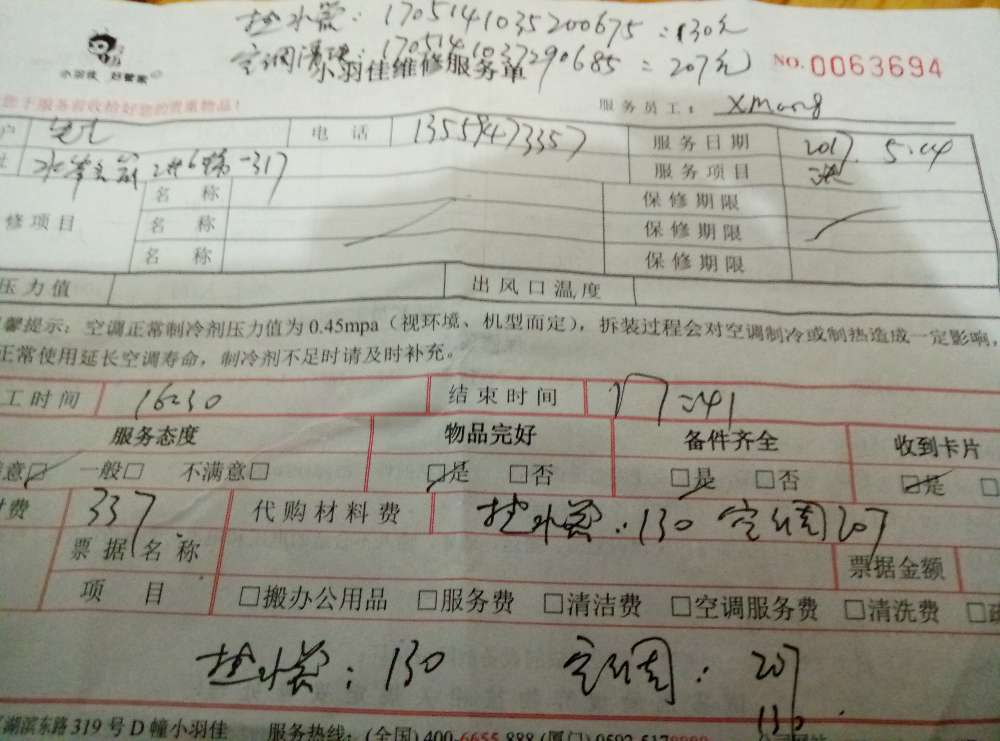 热水器：1705141035200675：130元
空调清洗：1705141037290685：207元
小羽佳 好管家
小羽佳维修服务单
NO.0063694
您于服务前收拾好您的贵重物品！
服务员工：
电话 13559473357 服务日期 2017.5.14
2#6梯-317 服务项目
修项目 名称 保修期限
名称 保修期限
名称 保修期限
压力值 出风口温度
馨提示：空调正常制冷剂压力值为0.45mpa（视环境、机型而定），拆装过程会对空调制冷或制热造成一定影响，
正常使用延长空调寿命，制冷剂不足时请及时补充。
工时间 16:30 结束时间 17:41
服务态度 物品完好 备件齐全 收到卡片
意□ 一般□ 不满意□ □是 □否 □是 □否 □是 □
费 337 代购材料费 热水器：130 空调207
票据名称 票据金额
项目 □搬办公用品 □服务费 □清洁费 □空调服务费 □清洗费 □
热水器：130 空调：207
130
湖滨东路319号D幢小羽佳 服务热线：(全国)400-6655-888 (厦门)0592-517